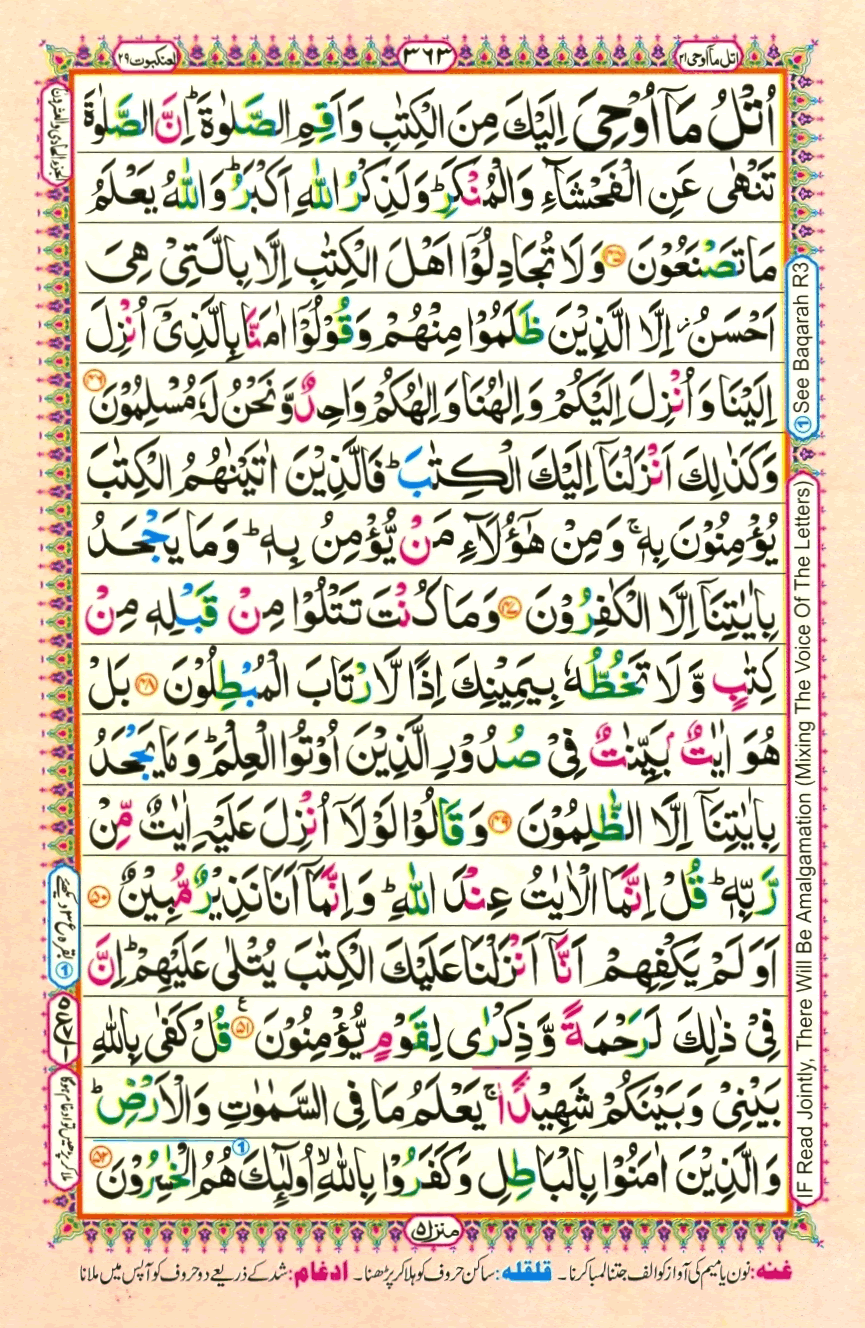 اتل مآ اوحی ۲۱
۳۶۳
العنکبوت ۲۹
اُتْلُ مَاۤ اُوْحِیَ اِلَیْكَ مِنَ الْكِتٰبِ وَاَقِمِ الصَّلٰوةَ ؕ اِنَّ الصَّلٰوةَ
تَنْهٰی عَنِ الْفَحْشَآءِ وَالْمُنْكَرِ ؕ وَلَذِكْرُ اللّٰهِ اَكْبَرُ ؕ وَاللّٰهُ یَعْلَمُ
مَا تَصْنَعُوْنَ ﴿۴۵﴾ وَلَا تُجَادِلُوْۤا اَهْلَ الْكِتٰبِ اِلَّا بِالَّتِیْ هِیَ
اَحْسَنُ ۖ اِلَّا الَّذِیْنَ ظَلَمُوْا مِنْهُمْ وَقُوْلُوْۤا اٰمَنَّا بِالَّذِیْۤ اُنْزِلَ
اِلَیْنَا وَاُنْزِلَ اِلَیْكُمْ وَاِلٰهُنَا وَاِلٰهُكُمْ وَاحِدٌ وَّنَحْنُ لَهٗ مُسْلِمُوْنَ ﴿۴۶﴾
وَكَذٰلِكَ اَنْزَلْنَاۤ اِلَیْكَ الْكِتٰبَ ؕ فَالَّذِیْنَ اٰتَیْنٰهُمُ الْكِتٰبَ
یُؤْمِنُوْنَ بِهٖ ۚ وَمِنْ هٰۤؤُلَآءِ مَنْ یُّؤْمِنُ بِهٖ ؕ وَمَا یَجْحَدُ
بِاٰیٰتِنَاۤ اِلَّا الْكٰفِرُوْنَ ﴿۴۷﴾ وَمَا كُنْتَ تَتْلُوْا مِنْ قَبْلِهٖ مِنْ
كِتٰبٍ وَّلَا تَخُطُّهٗ بِیَمِیْنِكَ اِذًا لَّارْتَابَ الْمُبْطِلُوْنَ ﴿۴۸﴾ بَلْ
هُوَ اٰیٰتٌۢ بَیِّنٰتٌ فِیْ صُدُوْرِ الَّذِیْنَ اُوْتُوا الْعِلْمَ ؕ وَمَا یَجْحَدُ
بِاٰیٰتِنَاۤ اِلَّا الظّٰلِمُوْنَ ﴿۴۹﴾ وَقَالُوْا لَوْلَاۤ اُنْزِلَ عَلَیْهِ اٰیٰتٌ مِّنْ
رَّبِّهٖ ؕ قُلْ اِنَّمَا الْاٰیٰتُ عِنْدَ اللّٰهِ ؕ وَاِنَّمَاۤ اَنَا نَذِیْرٌ مُّبِیْنٌ ﴿۵۰﴾
اَوَلَمْ یَكْفِهِمْ اَنَّاۤ اَنْزَلْنَا عَلَیْكَ الْكِتٰبَ یُتْلٰی عَلَیْهِمْ ؕ اِنَّ
فِیْ ذٰلِكَ لَرَحْمَةً وَّذِكْرٰی لِقَوْمٍ یُّؤْمِنُوْنَ ﴿۵۱﴾ ع قُلْ كَفٰی بِاللّٰهِ
بَیْنِیْ وَبَیْنَكُمْ شَهِیْدًا ۚ یَعْلَمُ مَا فِی السَّمٰوٰتِ وَالْاَرْضِ ؕ
وَالَّذِیْنَ اٰمَنُوْا بِالْبَاطِلِ وَكَفَرُوْا بِاللّٰهِ ۙ اُولٰٓئِكَ هُمُ الْخٰسِرُوْنَ ﴿۵۲﴾
الجزء الحادی والعشرون
① See Baqarah R3
IF Read Jointly, There Will Be Amalgamation (Mixing The Voice Of The Letters)
① بقرہ ع ۳ دیکھئے
ملا کر پڑھیں تو ادغام ہوگا
منزل ۵
غنه: نون یا میم کی آواز کو الف جتنا لمبا کرنا۔ قلقله: ساکن حروف کو ہلا کر پڑھنا۔ ادغام: شد کے ذریعے دو حروف کو آپس میں ملانا